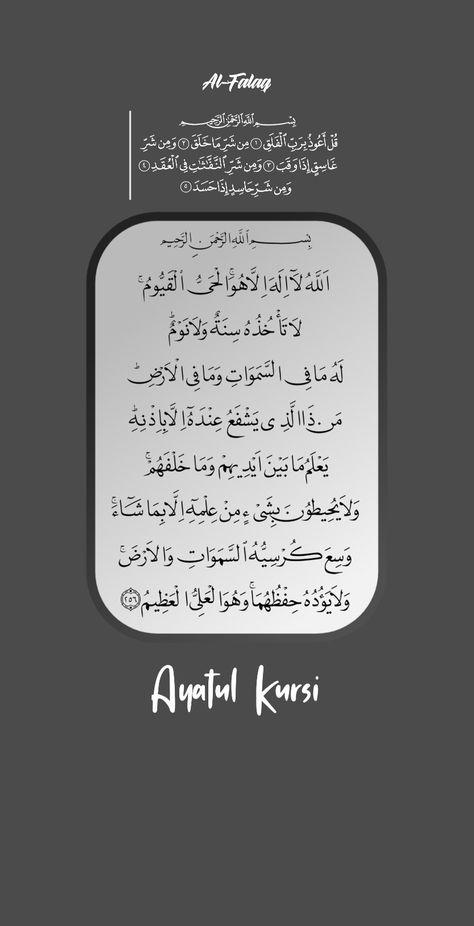 Al-Falaq
بِسْمِ ٱللَّهِ ٱلرَّحْمَٰنِ ٱلرَّحِيمِ
قُلْ أَعُوذُ بِرَبِّ ٱلْفَلَقِ ١ مِن شَرِّ مَا خَلَقَ ٢ وَمِن شَرِّ
غَاسِقٍ إِذَا وَقَبَ ٣ وَمِن شَرِّ ٱلنَّفَّٰثَٰتِ فِى ٱلْعُقَدِ ٤
وَمِن شَرِّ حَاسِدٍ إِذَا حَسَدَ ٥
بِسْمِ اللَّهِ الرَّحْمَنِ الرَّحِيمِ
اَللّٰهُ لَآ اِلٰهَ اِلَّا هُوَۚ اَلْحَيُّ الْقَيُّومُۚ
لَا تَأْخُذُهُ سِنَةٌ وَلَا نَوْمٌۜ
لَهُ مَا فِي السَّمَوَاتِ وَمَا فِي الْاَرْضِۜ
مَنْ ذَا الَّذِي يَشْفَعُ عِنْدَهُٓ اِلَّا بِاِذْنِهِۜ
يَعْلَمُ مَا بَيْنَ اَيْدِيهِمْ وَمَا خَلْفَهُمْۚ
وَلَا يُحِيطُونَ بِشَيْءٍ مِنْ عِلْمِهِٓ اِلَّا بِمَا شَٓاءَۚ
وَسِعَ كُرْسِيُّهُ السَّمَوَاتِ وَالْاَرْضَۚ
وَلَا يَؤُدُهُ حِفْظُهُمَاۚ وَهُوَ الْعَلِيُّ الْعَظِيمُ ٢٥٦
Ayatul Kursi